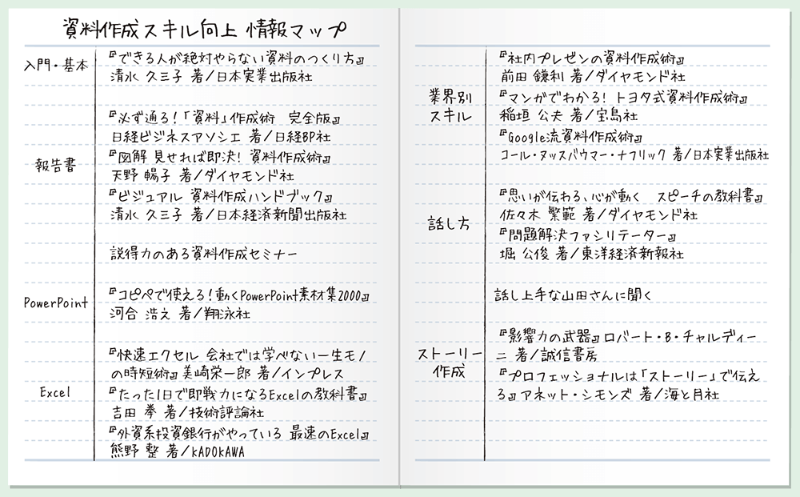 資料作成スキル向上 情報マップ
入門・基本
『できる人が絶対やらない資料のつくり方』
清水 久三子 著/日本実業出版社
報告書
『必ず通る!「資料」作成術 完全版』
日経ビジネスアソシエ 著/日経BP社
『図解 見せれば即決! 資料作成術』
天野 暢子 著/ダイヤモンド社
『ビジュアル 資料作成ハンドブック』
清水 久三子 著/日本経済新聞出版社
説得力のある資料作成セミナー
PowerPoint
『コピペで使える!動くPowerPoint素材集2000』
河合 浩之 著/翔泳社
Excel
『快速エクセル 会社では学べない一生モノ
の時短術』美崎栄一郎 著/インプレス
『たった1日で即戦力になるExcelの教科書』
吉田 拳 著/技術評論社
『外資系投資銀行がやっている 最速のExcel』
熊野 整 著/KADOKAWA
業界別
スキル
『社内プレゼンの資料作成術』
前田 鎌利 著/ダイヤモンド社
『マンガでわかる! トヨタ式資料作成術』
稲垣 公夫 著/宝島社
『Google流資料作成術』
コール・ヌッスバウマー・ナフリック 著/日本実業出版社
話し方
『思いが伝わる、心が動く スピーチの教科書』
佐々木 繁範 著/ダイヤモンド社
『問題解決ファシリテーター』
堀 公俊 著/東洋経済新報社
話し上手な山田さんに聞く
ストーリー
作成
『影響力の武器』ロバート・B・チャルディー
ニ 著/誠信書房
『プロフェッショナルは「ストーリー」で伝え
る』アネット・シモンズ 著/海と月社